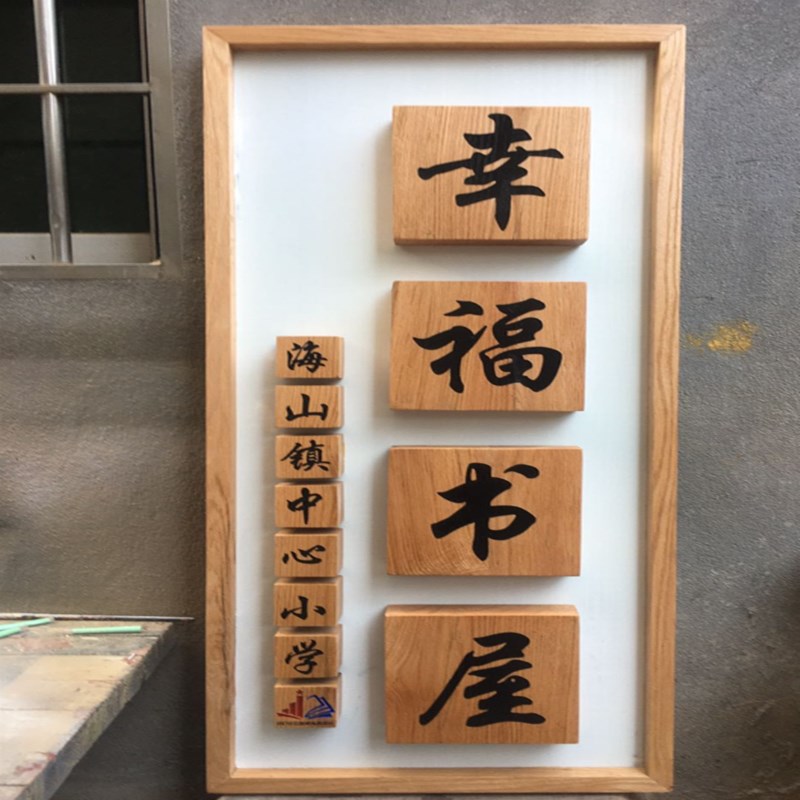 幸福书屋
海山镇中心小学